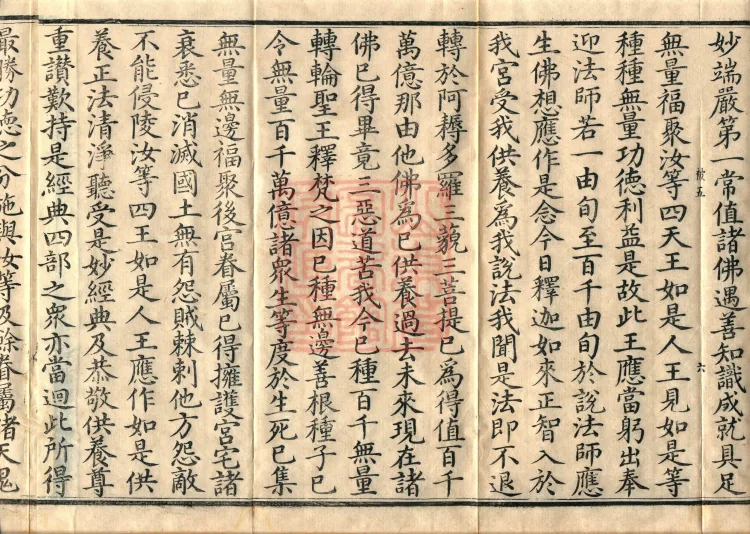 妙端嚴第一常值諸佛遇善知識成就具足
五
六
無量福聚汝等四天王如是人王見如是等
種種無量功德利益是故此王應當躬出奉
迎法師若一由旬至百千由旬於說法師應
生佛想應作是念今日釋迦如來正智入於
我宮受我供養為我說法我聞是法即不退
轉於阿耨多羅三藐三菩提已為得值百千
萬億那由他佛為已供養過去未來現在諸
佛已得畢竟三惡道苦我今已種百千無量
轉輪聖王釋梵之因已種無邊善根種子已
令無量百千萬億諸衆生等度於生死已集
無量無邊福聚後宮眷屬已得擁護宮宅諸
衰悉已消滅國土無有怨賊棘刺他方怨敵
不能侵陵汝等四王如是人王應作如是供
養正法清淨聽受是妙經典及恭敬供養尊
重讚歎持是經典四部之衆亦當迴此所得
最勝功德之分施與汝等及餘眷屬諸天鬼